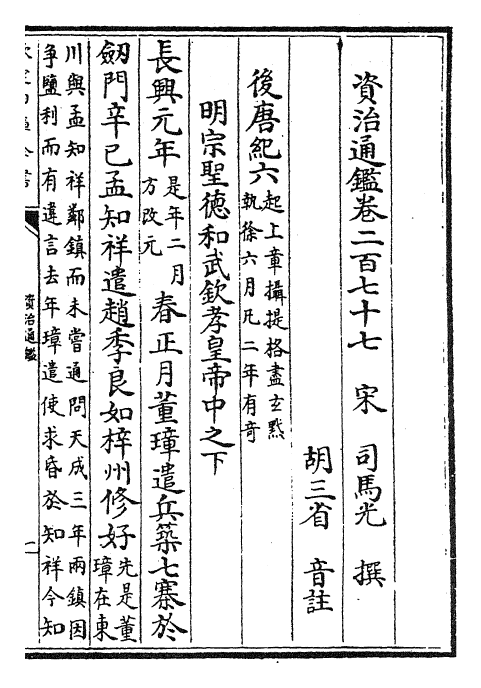 資治通鑑卷二百七十七　宋　司馬光　撰
胡三省　音註
後唐紀六
起上章攝提格盡玄黓
執徐六月凡二年有奇
明宗聖德和武欽孝皇帝中之下
長興元年
是年二月
方改元
春正月董璋遣兵築七寨於
劒門辛巳孟知祥遣趙季良如梓州修好
先是董
璋在東
川與孟知祥鄰鎮而未嘗通問天成三年兩鎮因
争鹽利而有違言去年璋遣使求昏於知祥今知
資治通鑑